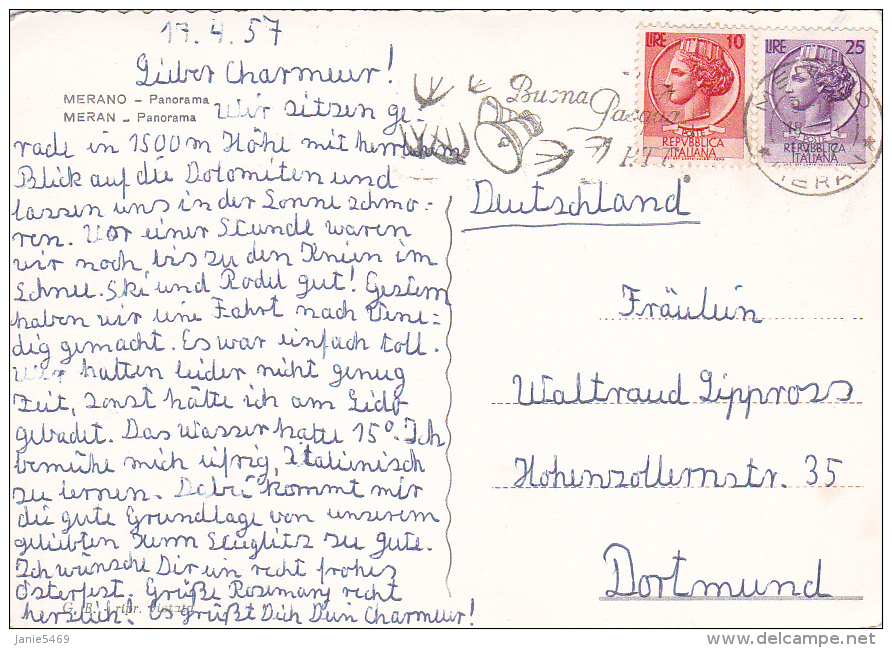 17.4.57
Lieber Charmeur!
MERANO - Panorama
MERAN - Panorama
Wir sitzen ge-
rade in 1500m Höhe mit herrlichem
Blick auf die Dolomiten und
lassen uns in der Sonne schmo-
ren. Vor einer Stunde waren
wir noch bis zu den Knien im
Schnee. Ski und Rodel gut! Gestern
haben wir eine Fahrt nach Vene=
dig gemacht. Es war einfach toll.
Wir hatten leider nicht genug
Zeit, sonst hätte ich am Lido
gebadet. Das Wasser hatte 15°. Ich
bemühe mich eifrig, Italienisch
zu lernen. Dabei kommt mir
die gute Grundlage von unserem
geliebten Herrn Stieglitz zu gute.
Ich wünsche Dir ein recht frohes
Osterfest. Grüße Rosemary recht
herzlich! Es grüßt Dich Dein Charmeur!
LIRE 10
POSTE
REPVBBLICA
ITALIANA
LIRE 25
POSTE
REPVBBLICA
ITALIANA
Buona
Pasqua
MERANO
MERAN
Deutschland
Fräulein
Waltraud Lippross
Hohenzollernstr. 35
Dortmund
Janie5469
delcampe.net